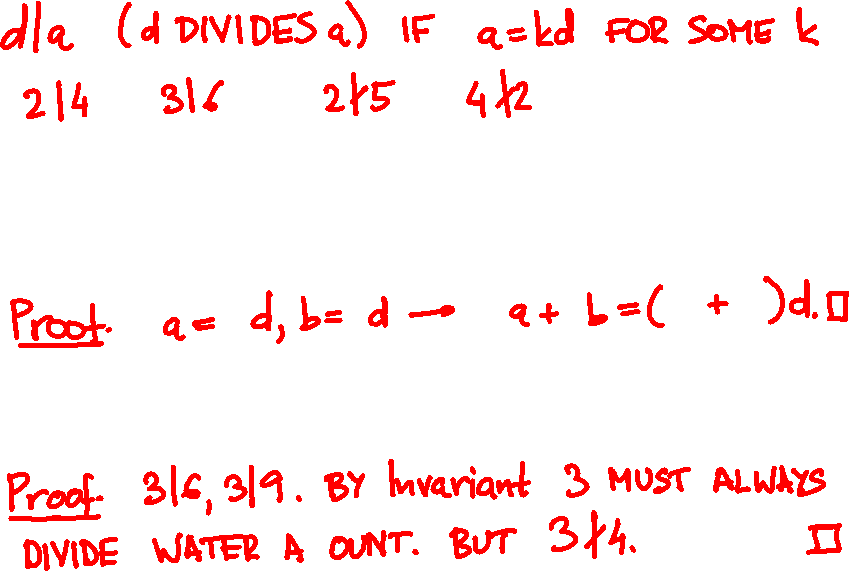 d|a (d DIVIDES a) IF a=kd FOR SOME k
2|4 3|6 2∤5 4∤2
Proof. a= d, b= d → a+ b=( + )d. □
Proof. 3|6, 3|9. BY Invariant 3 MUST ALWAYS
DIVIDE WATER A OUNT. BUT 3∤4. □